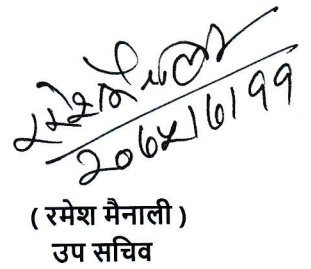 रमेश मैनाली
२०७५।६।११
( रमेश मैनाली )
उप सचिव